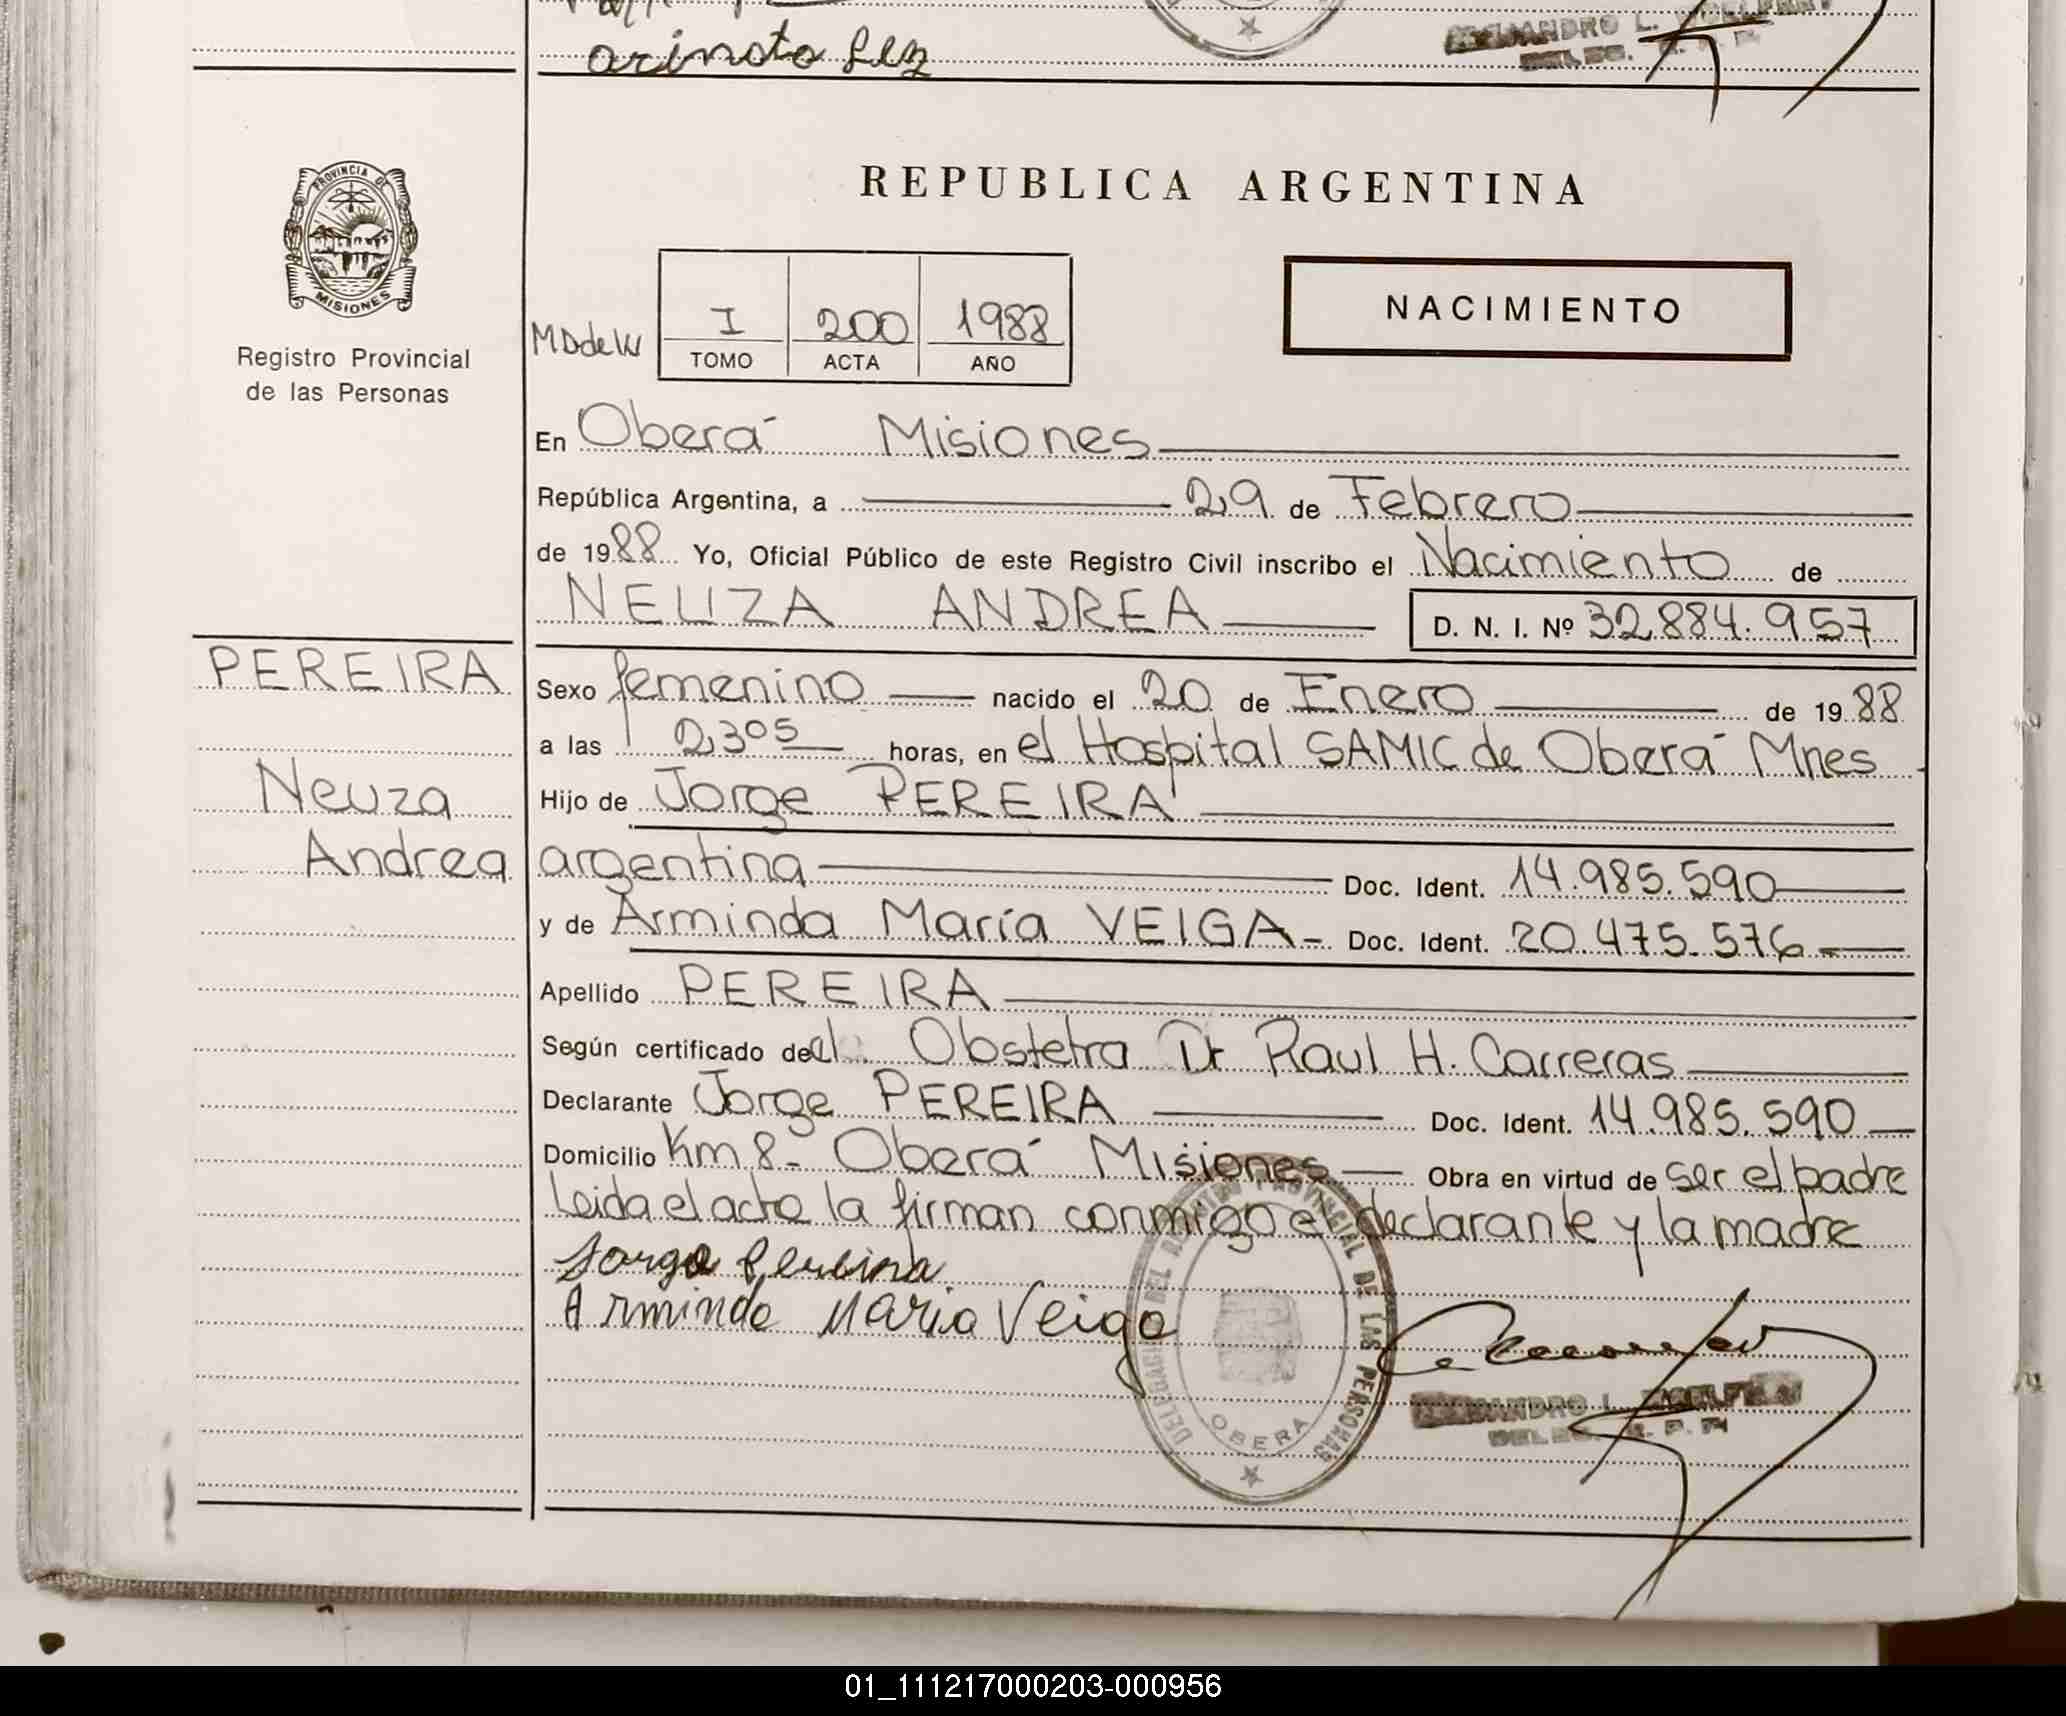 arinoto Lez
REPUBLICA ARGENTINA
PROVINCIA DE
MISIONES
Registro Provincial
de las Personas
MDdeW
I 200 1988
TOMO ACTA AÑO
NACIMIENTO
En Oberá Misiones
República Argentina, a 29 de Febrero
de 1988 Yo, Oficial Público de este Registro Civil inscribo el Nacimiento de
NEUZA ANDREA D. N. I. Nº 32.884.957
PEREIRA
Neuza
Andrea
Sexo femenino nacido el 20 de Enero de 1988
a las 2305 horas, en el Hospital SAMIC de Oberá Mnes
Hijo de Jorge PEREIRA
argentina Doc. Ident. 14.985.590
y de Arminda María VEIGA- Doc. Ident. 20.475.576
Apellido PEREIRA
Según certificado del Obstetra Dr Raul H. Carreras
Declarante Jorge PEREIRA Doc. Ident. 14.985.590
Domicilio Km 8- Oberá Misiones Obra en virtud de ser el padre
Leida el acta la firman conmigo el declarante y la madre
Jorge Pereira
Arminda Maria Veiga
DELEGACION DEL REGISTRO PROVINCIAL DE LAS PERSONAS
OBERA
01_111217000203-000956